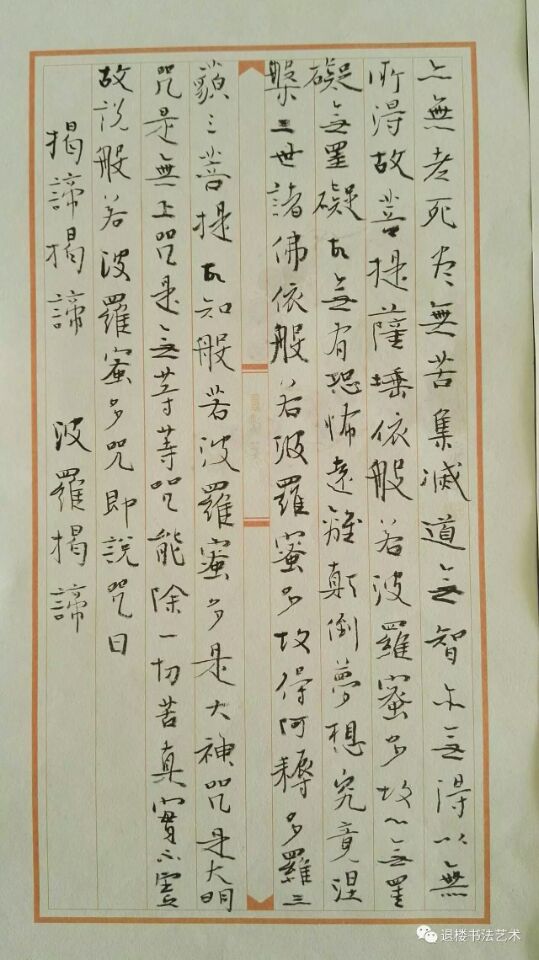 亦無老死尽無苦集滅道無智亦無得以無
所得故菩提薩埵依般若波羅蜜多故心無罣
礙無罣礙故無有恐怖遠離顛倒夢想究竟涅
槃三世諸佛依般若波羅蜜多故得阿耨多羅三
藐三菩提故知般若波羅蜜多是大神咒是大明
咒是無上咒是無等等咒能除一切苦真實不虛
故説般若波羅蜜多咒即説咒曰
揭諦揭諦 波羅揭諦
退楼书法艺术